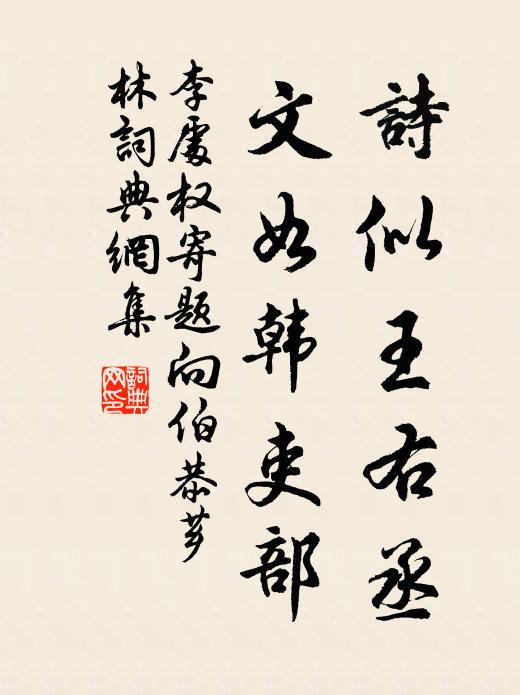 詩似王右丞
文如韩吏部
李處权寄题向伯恭芗
林詞典網集
詞典
网印